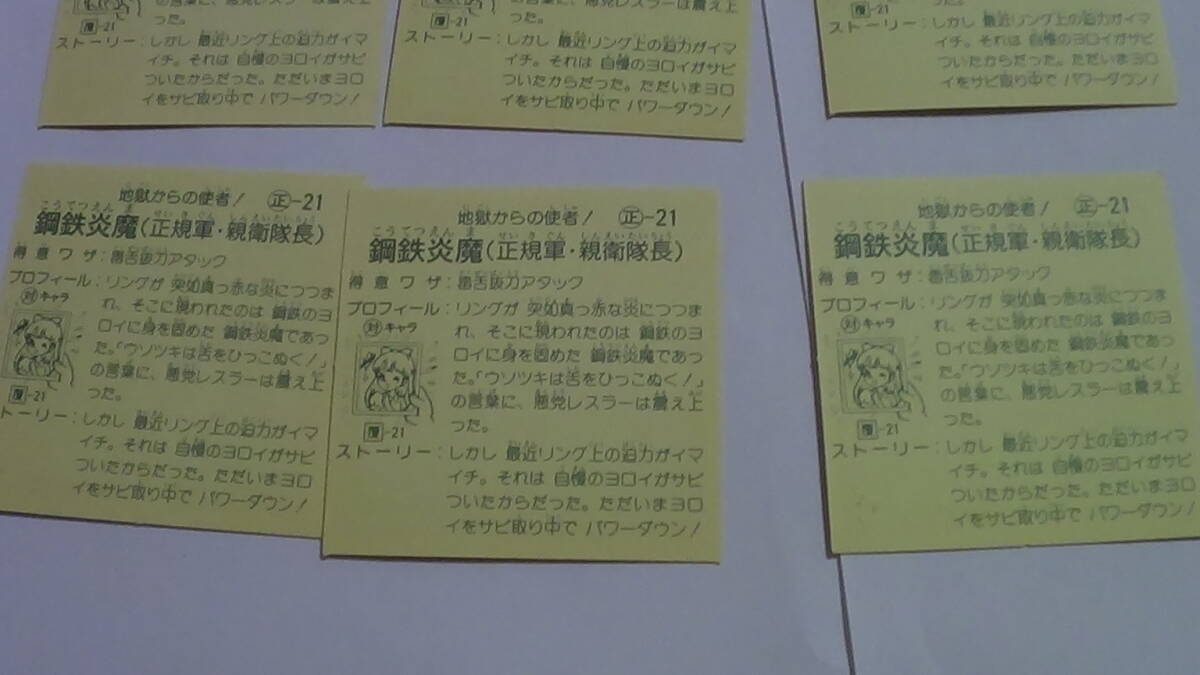 の言葉に、悪党レスラーは震え上
った。
-21
ストーリー：しかし 最近リング上の迫力がイマ
イチ。それは 自慢のヨロイがサビ
ついたからだった。ただいまヨロ
イをサビ取り中で パワーダウン！
の言葉に、悪党レスラーは震え上
った。
-21
ストーリー：しかし 最近リング上の迫力がイマ
イチ。それは 自慢のヨロイがサビ
ついたからだった。ただいまヨロ
イをサビ取り中で パワーダウン！
った。
-21
ストーリー：しかし 最近リング上の迫力がイマ
イチ。それは 自慢のヨロイがサビ
ついたからだった。ただいまヨロ
イをサビ取り中で パワーダウン！
地獄からの使者！ ㊣-21
こうてつえんま せいきぐん しんえいたいちょう
鋼鉄炎魔(正規軍・親衛隊長)
得意ワザ：毒舌抜刀アタック
プロフィール：リングが 突如真っ赤な炎につつま
対キャラ れ、そこに現われたのは 鋼鉄のヨ
ロイに身を固めた 鋼鉄炎魔であっ
た。「ウソツキは舌をひっこぬく！」
の言葉に、悪党レスラーは震え上
-21 った。
トーリー：しかし 最近リング上の迫力がイマ
イチ。それは 自慢のヨロイがサビ
ついたからだった。ただいまヨロ
イをサビ取り中で パワーダウン！
地獄からの使者！ ㊣-21
こうてつえんま せいきぐん しんえいたいちょう
鋼鉄炎魔(正規軍・親衛隊長)
得意ワザ：毒舌抜刀アタック
プロフィール：リングが 突如真っ赤な炎につつま
対キャラ れ、そこに現われたのは 鋼鉄のヨ
ロイに身を固めた 鋼鉄炎魔であっ
た。「ウソツキは舌をひっこぬく！」
の言葉に、悪党レスラーは震え上
-21 った。
ストーリー：しかし 最近リング上の迫力がイマ
イチ。それは 自慢のヨロイがサビ
ついたからだった。ただいまヨロ
イをサビ取り中で パワーダウン！
地獄からの使者！ ㊣-21
こうてつえんま せいきぐん しんえいたいちょう
鋼鉄炎魔(正規軍・親衛隊長)
得意ワザ：毒舌抜刀アタック
プロフィール：リングが 突如真っ赤な炎につつま
対キャラ れ、そこに現われたのは 鋼鉄のヨ
ロイに身を固めた 鋼鉄炎魔であっ
た。「ウソツキは舌をひっこぬく！」
の言葉に、悪党レスラーは震え上
-21 った。
ストーリー：しかし 最近リング上の迫力がイマ
イチ。それは 自慢のヨロイがサビ
ついたからだった。ただいまヨロ
イをサビ取り中で パワーダウン！